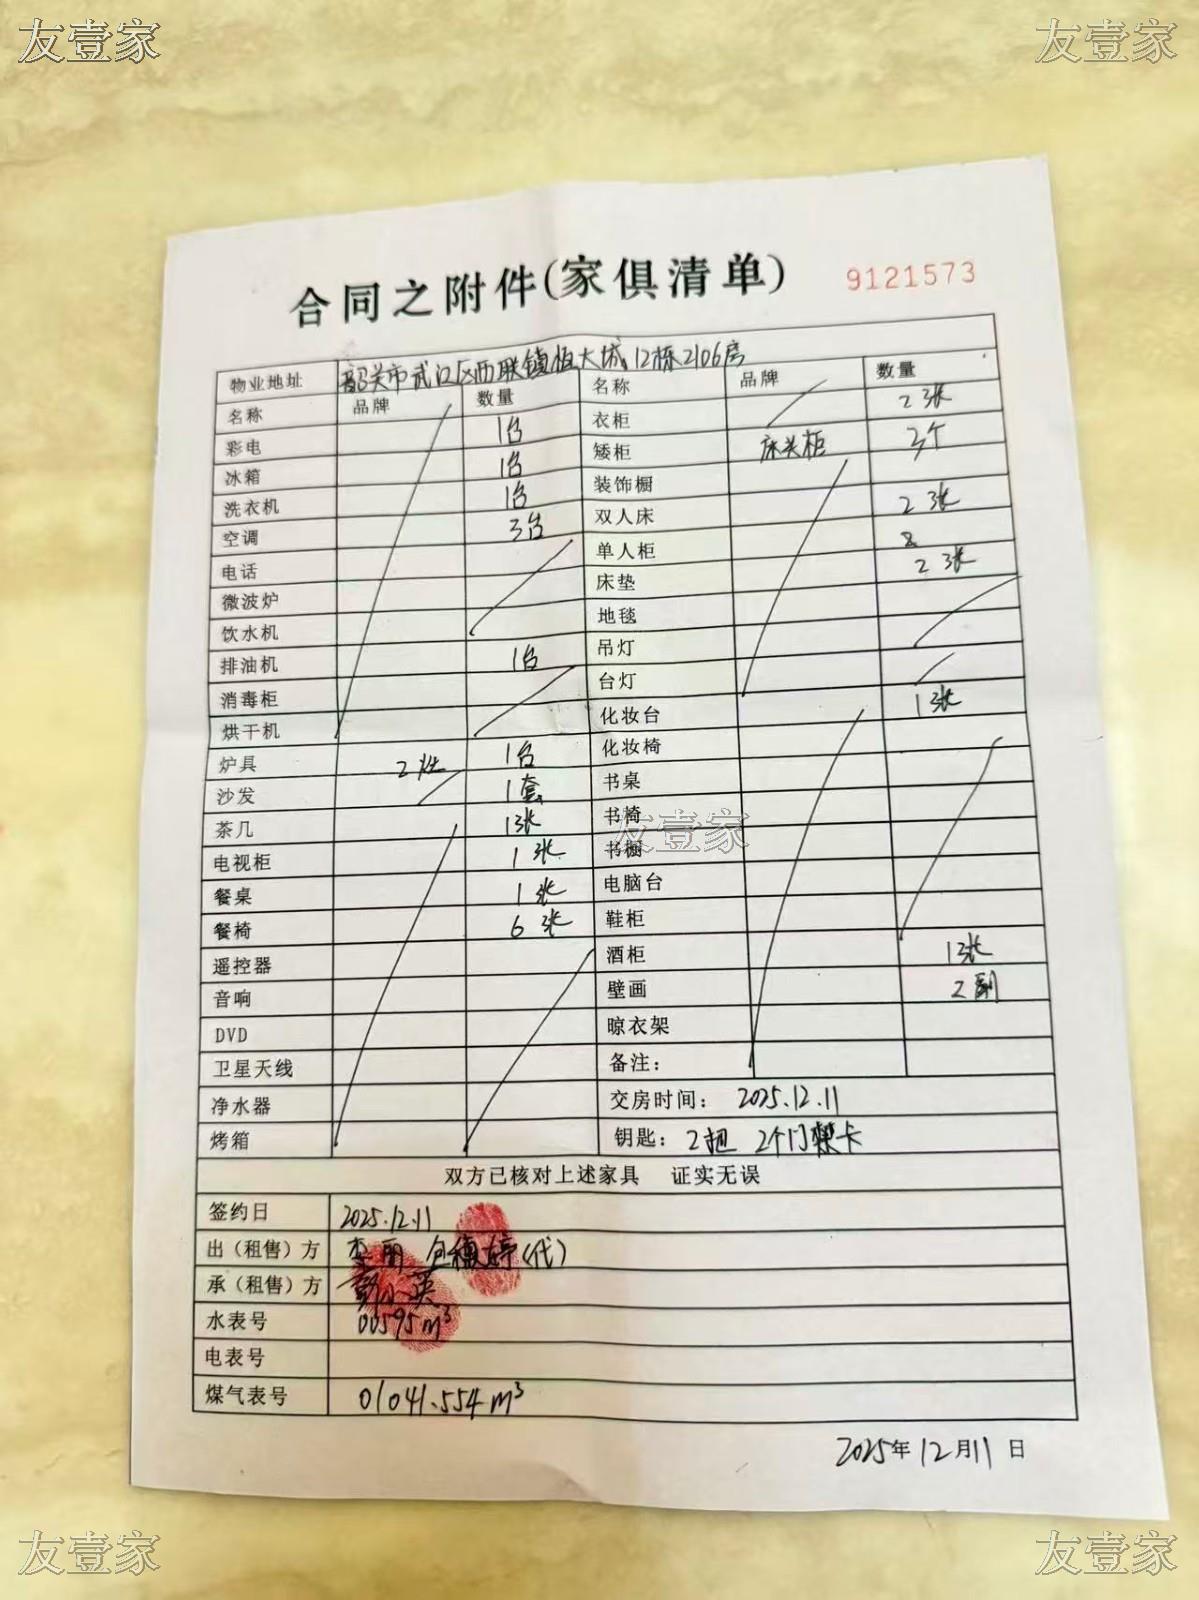 友壹家 友壹家
合同之附件(家俱清单) 9121573
物业地址 韶关市武江区西联镇恒大城12栋2106房
名称 品牌 数量 名称 品牌 数量
彩电 1台 衣柜 2张
冰箱 1台 矮柜 床头柜 3个
洗衣机 1台 装饰橱
空调 3台 双人床 2张
电话 单人柜
微波炉 床垫 2张
饮水机 地毯
排油机 1台 吊灯
消毒柜 台灯
烘干机 化妆台 1张
炉具 2灶 1台 化妆椅
沙发 1套 书桌
茶几 1张 书椅
电视柜 1张 书橱
友壹家
餐桌 1张 电脑台
餐椅 6张 鞋柜
遥控器 酒柜 1张
音响 壁画 2副
DVD 晾衣架
卫星天线 备注:
净水器 交房时间: 2025.12.11
烤箱 钥匙: 2把 2个门禁卡
双方已核对上述家具 证实无误
签约日 2025.12.11
出(租售)方 李丽 包穗婷(代)
承(租售)方 彭小英
水表号 00595m³
电表号
煤气表号 01041.554m³
2025年12月11日
友壹家 友壹家